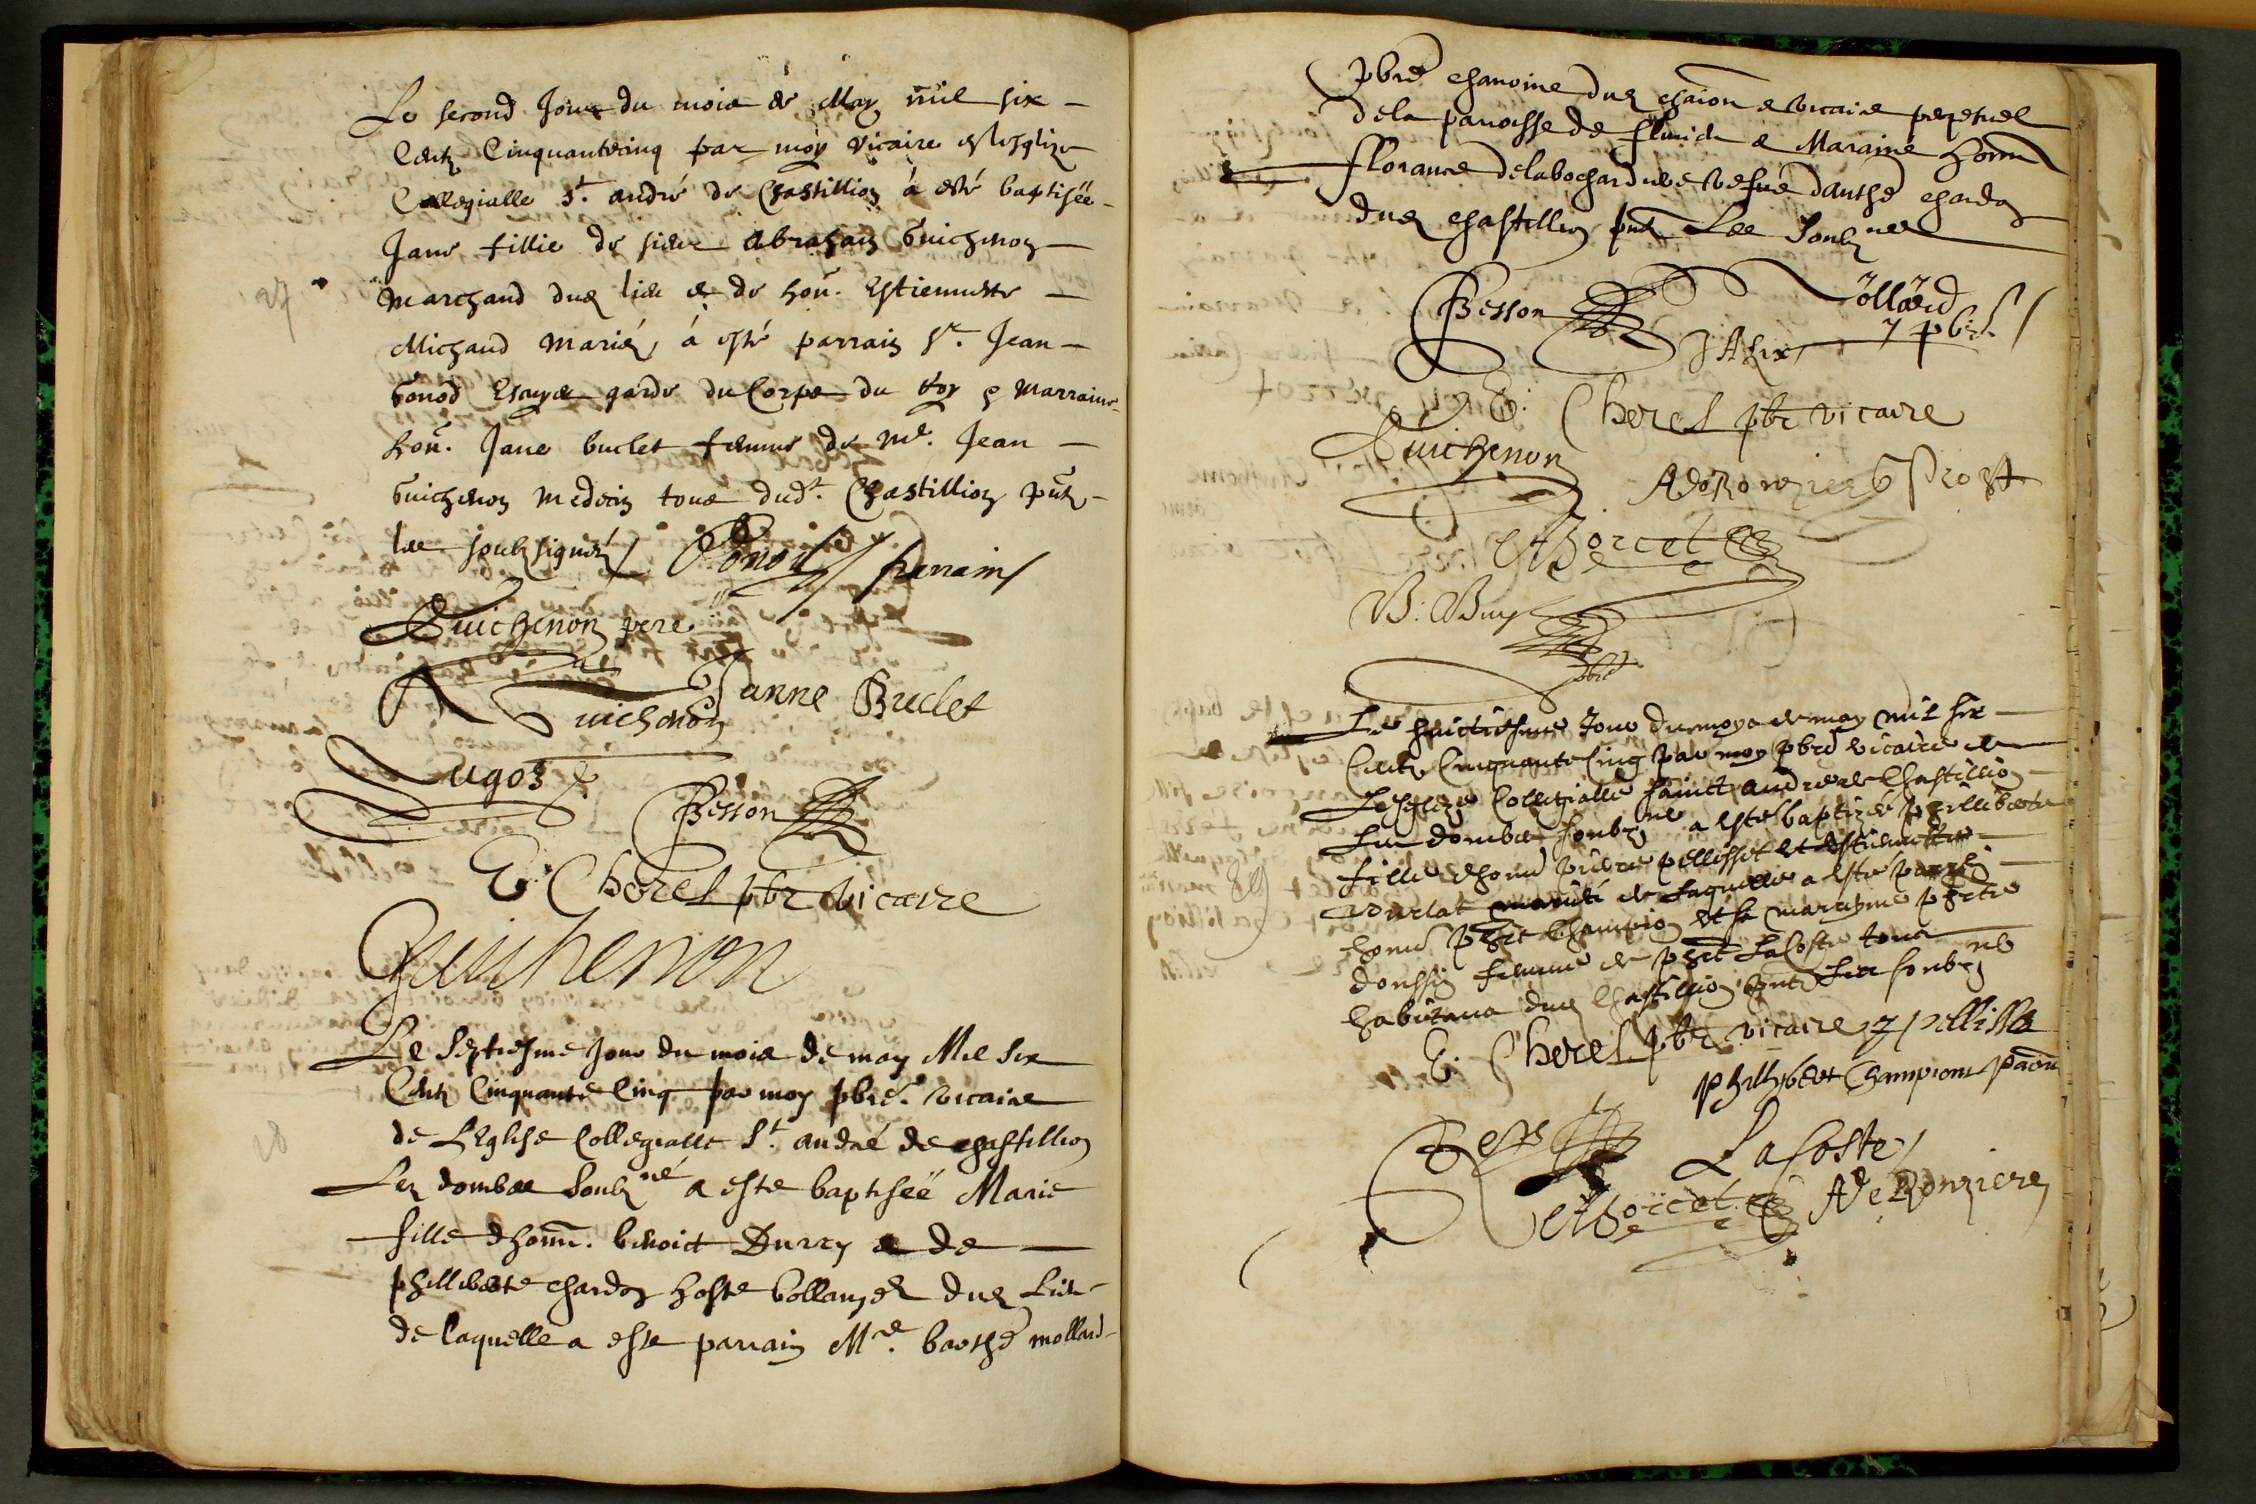 Le second Jour du mois de May mil six
Centz Cinquantecinq par moy vicaire en lesglize
Collegialle St. andré de Chastillion à esté baptiséë
Jane fillie de sieur Abraham Guichenon
Marchand dud lieu & de hon. Estiennette
Michaud mariés, à esté parrain Sr. Jean
Gonod Escuyer garde du Corps du Roy & marraine
hon. Jane buclet femme de Me. Jean
Guichenon Medecin tous dudt. Chastillion pntz
les soubsignéz Gonod parrain
Guichenon pere
Guichenon Janne Buclet
Lugoz
Besson
E. Cherel pbr vicaire
Guichenon
Le Septiesme Jour du mois de may Mil Six
Centz Cinquante Cinq par moy pbre. vicaire
de LEglise Collegialle St. andré de chastillion
Lez dombes Soubzné a este baptiséë Marie
fille dhonn. benoict Durry & de
philliberte chardon hoste bollanger dud Lieu
de laquelle a este parrain Mre. barthe mollard
pbre chanoine dud chaion & vicaire perpetuel
dela parroisse de & Maraine honn
fllorance vefue danthe chardon
dud chastillion pntz Les Soubznes
Besson Mollard
J Alix pbre
E. Cherel pbr vicaire
Guichenon
ADeRonzieres
A Borcet
B. Buy
pbre
Le huictiesme Jour du moys de may mil six
Centz Cinquante Cinq par moy pbre vicaire de
Lesglize Collegialle sainct andre de Chastillion
Les dombes soubzne a este baptizée philliberte
fille dhonn pierre pellisset et estiennette
mariés de laquelle a este parrin
honn phet Champion et sa marreyne phete
femme de phet LaCoste tous
habitans dud Chastillion pntz Les soubzne
E. Cherel pbr vicaire
phillybert Champion
Bess LaCoste
A Borcet ADeRonzieres